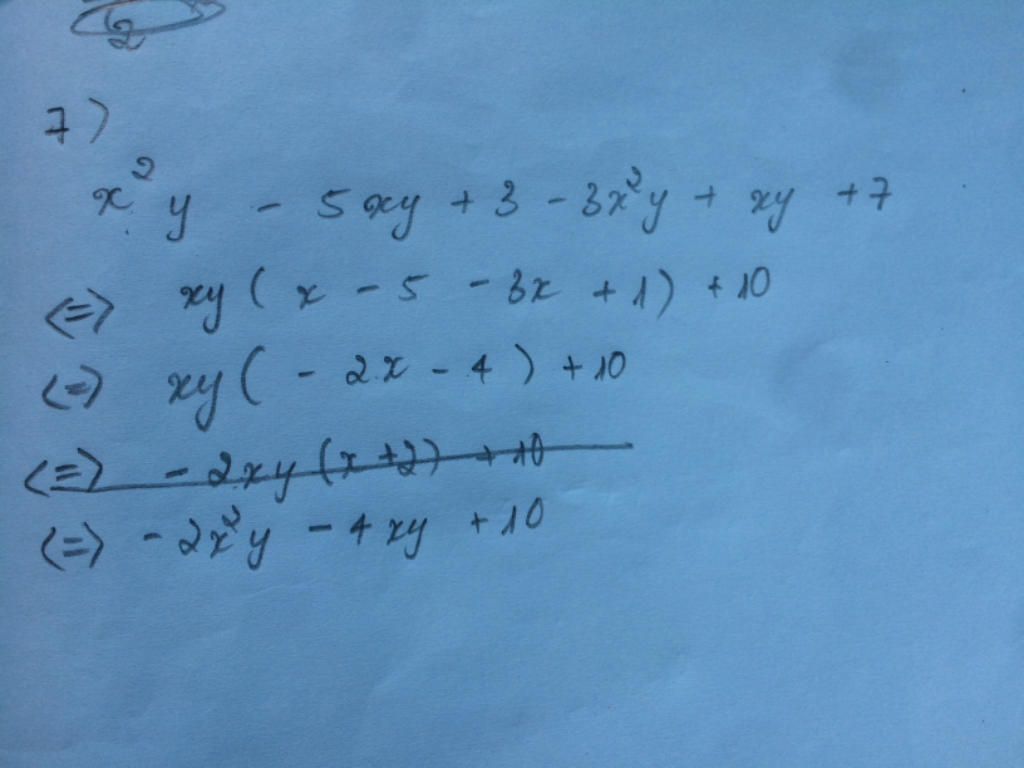 2
7)
x²y - 5xy + 3 - 3x²y + xy + 7
<=> xy(x - 5 - 3x + 1) + 10
<=> xy(- 2x - 4) + 10
<=> - 2xy(x + 2) + 10
<=> - 2x²y - 4xy + 10